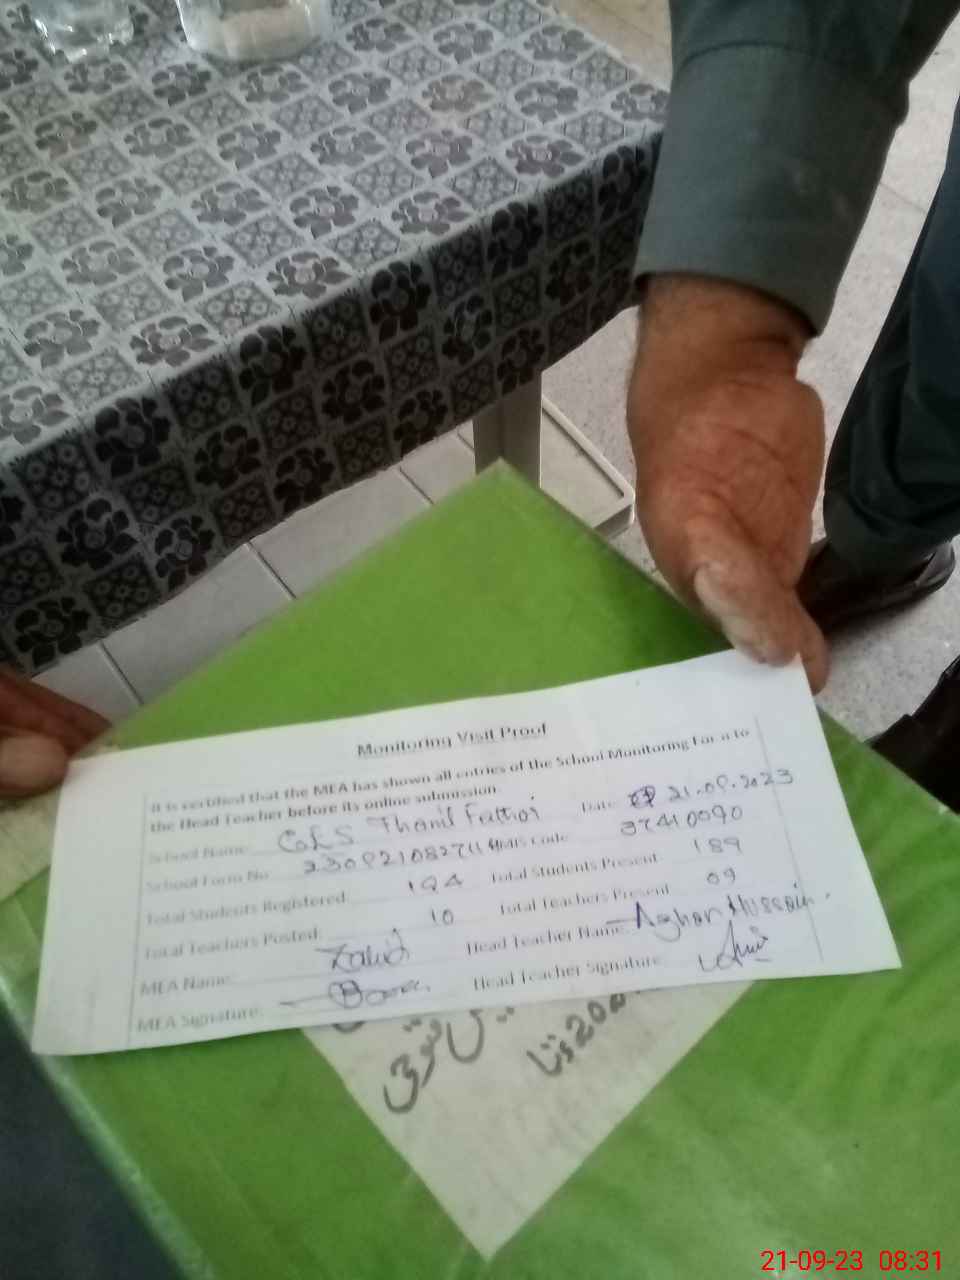 Monitoring Visit Proof
It is certified that the MEA has shown all entries of the School Monitoring For a to
the Head Teacher before its online submission.
School Name: Date: 21.09.2023
School Form No Code 37410090
Total Students Registered 194 Total Students Present 189
Total Teachers Posted: 10 Total Teachers Present 09
MEA Name: Zahid Head Teacher Name: Azhar Hussain.
MEA Signature: Head Teacher Signature:
21-09-23 08:31